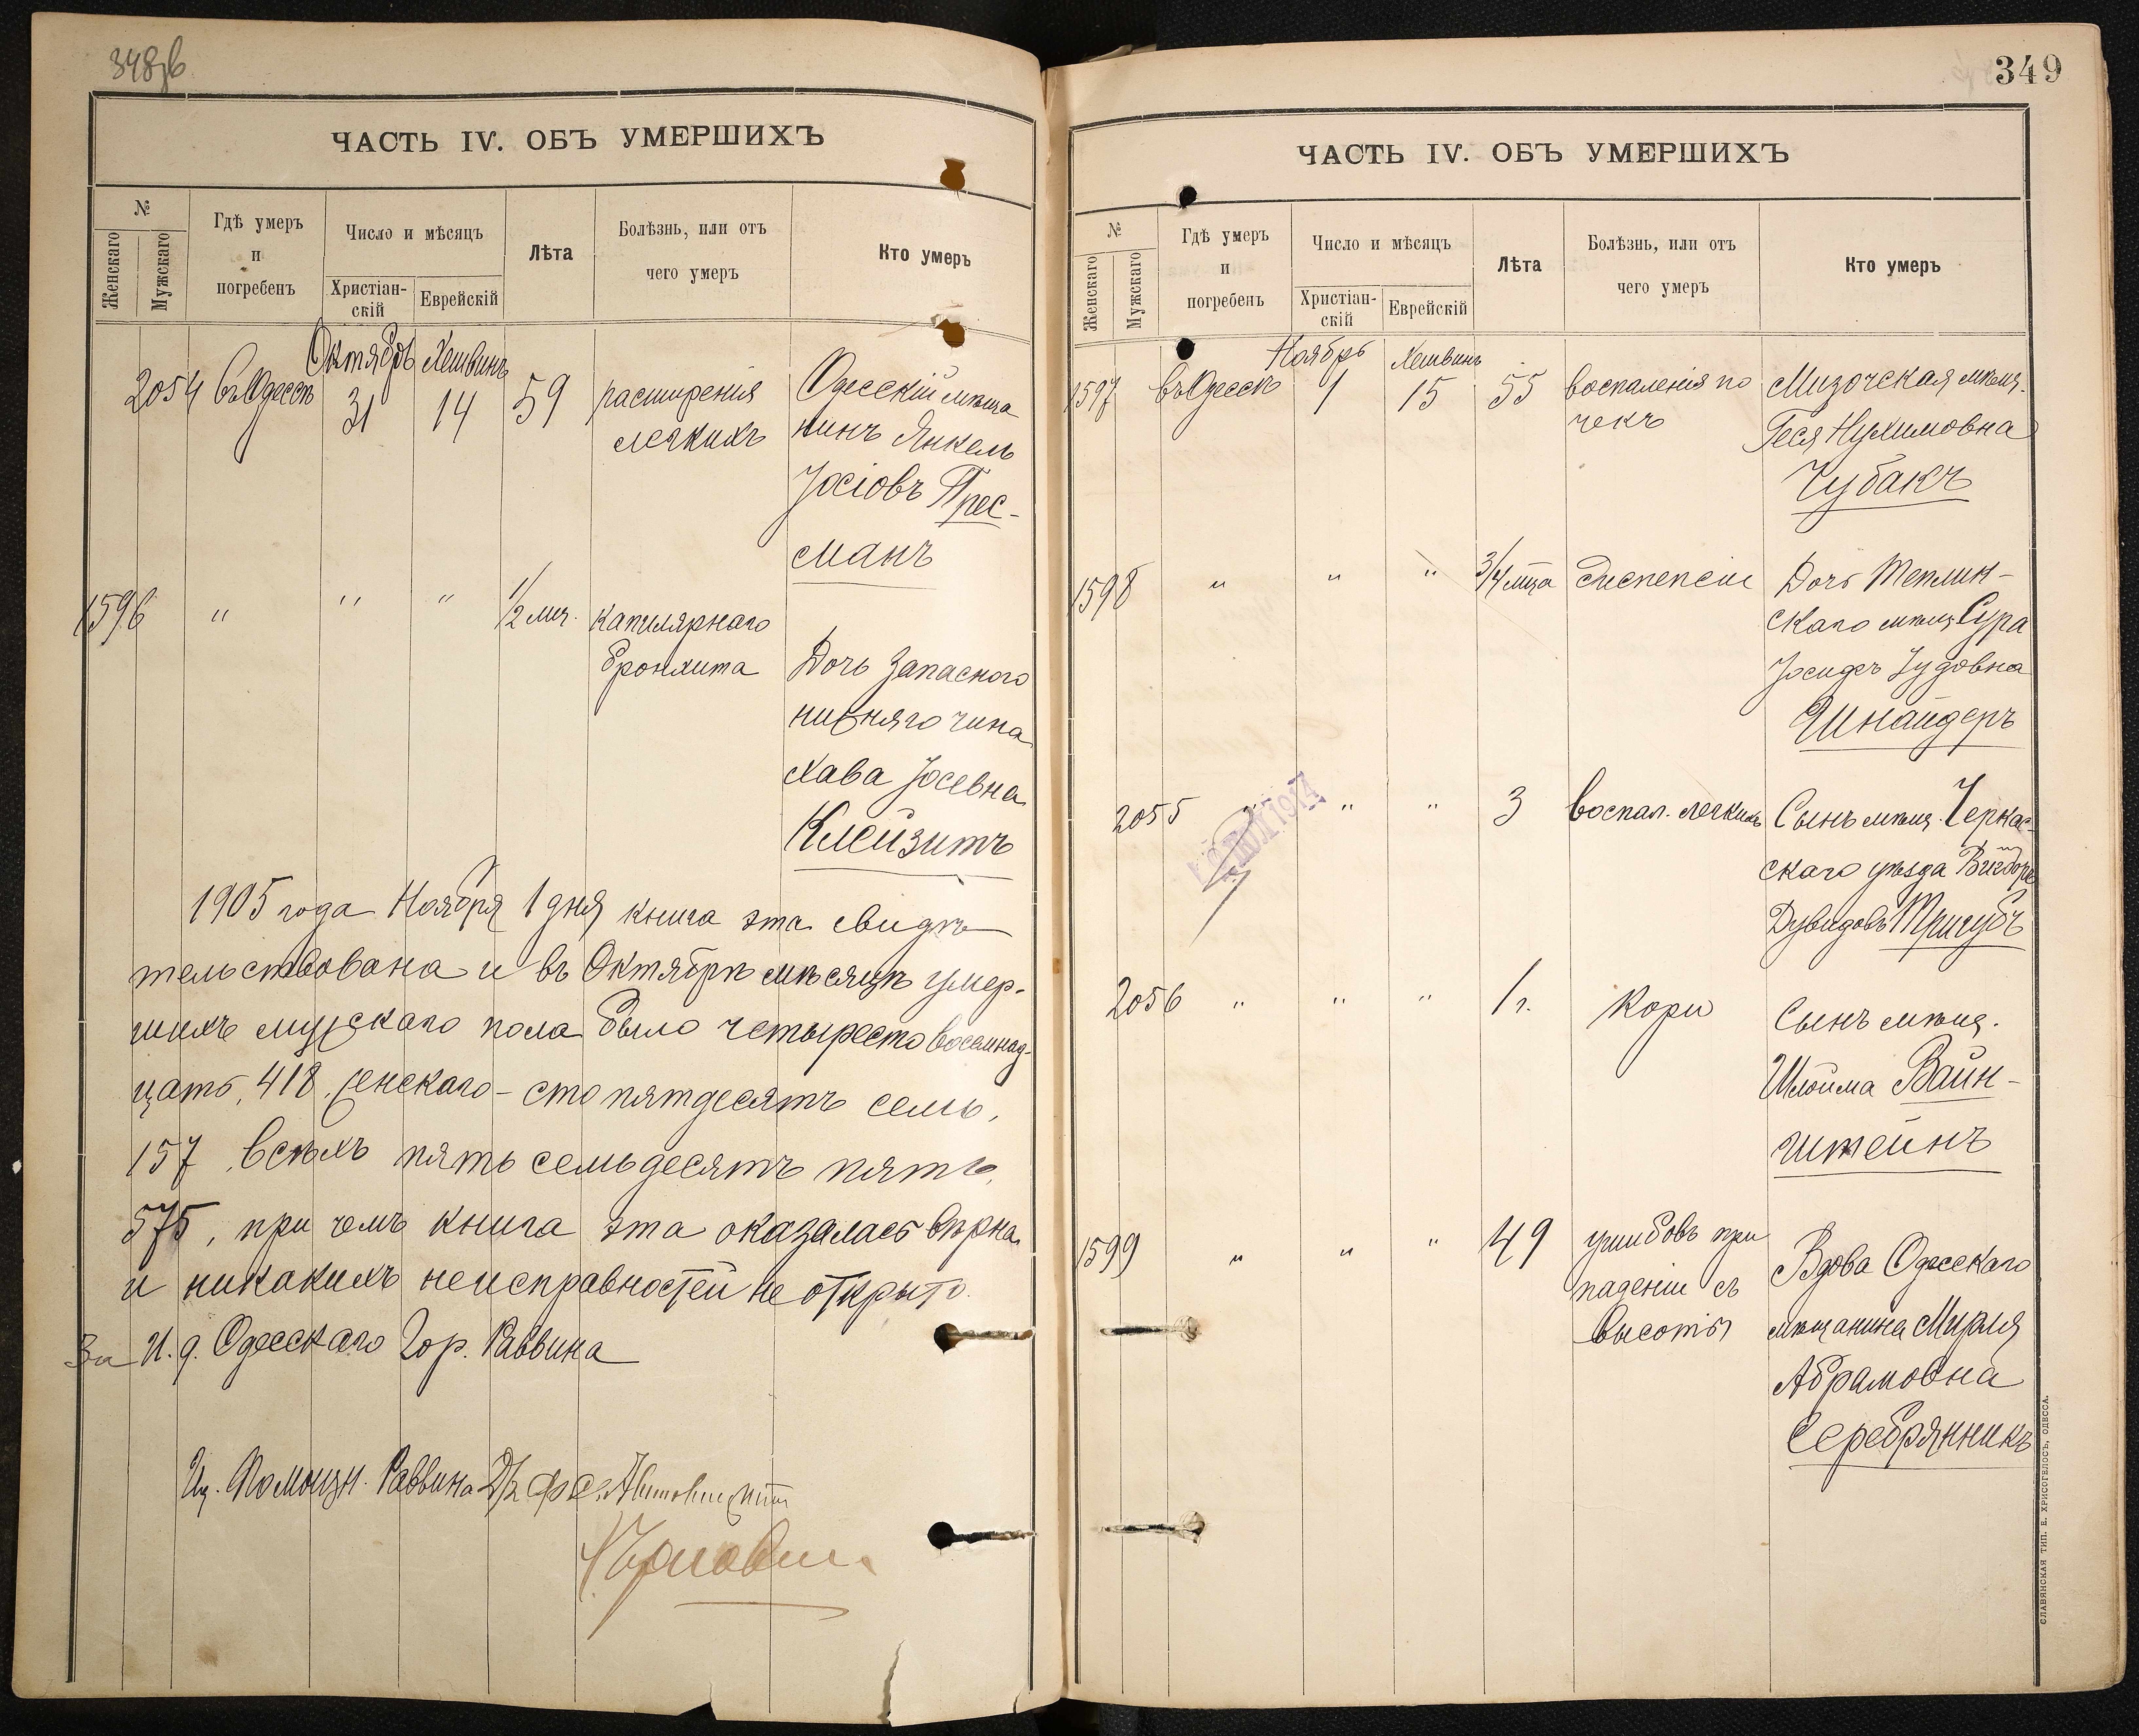 348об
ЧАСТЬ IV. ОБЪ УМЕРШИХЪ
№
Женскаго
Мужскаго
Гдѣ умеръ
и
погребенъ
Число и мѣсяцъ
Христіан-
скій
Еврейскій
Лѣта
Болѣзнь, или отъ
чего умеръ
Кто умеръ
Октябрь Хешвинъ
2054 Въ Одессѣ 31 14 59 расширенія Одесскій мѣща
легкихъ нинъ Янкель
Іосіовъ Прес-
манъ
1596 " " " 1/2 мч. капилярнаго
бронхита Дочь запасного
нижняго чина
Хава Іосевна
Клейзитъ
1905 года Ноября 1 дня книга эта свидѣ
тельствована и въ Октябрѣ мѣсяцѣ умер-
шихъ мужскаго пола было четыресто восемнад-
цать, 418, женскаго - сто пятдесятъ семь,
157, всѣхъ пять семьдесятъ пять,
575, при чемъ книга эта оказалась вѣрна
и никакихъ неисправностей не открыто.
За И. д. Одесскаго Гор. Раввина
Помощн. Раввина
349
ЧАСТЬ IV. ОБЪ УМЕРШИХЪ
№
Женскаго
Мужскаго
Гдѣ умеръ
и
погребенъ
Число и мѣсяцъ
Христіан-
скій
Еврейскій
Лѣта
Болѣзнь, или отъ
чего умеръ
Кто умеръ
Ноябрь Хешвинъ
1597 въ Одессѣ 1 15 55 воспаленія по Мизочская мѣщ.
чекъ Геся Нухимовна
Чубакъ
1598 " " " 3/4 мца диспепсіи Дочь Теплин-
скаго мѣщ Сура
Іосифъ Іудовна
Шнайдеръ
2055 " " " 3 воспал. легкихъ Сынъ мѣщ. Черкас-
скаго уѣзда Вигдоръ
Дувидовъ Тригубъ
1914
2056 " " " 1 г. Кори Сынъ мѣщ.
Шлойма Вайн-
штейнъ
1599 " " " 49 ушибовъ при
паденіи съ Вдова Одесскаго
высоты мѣщанина Мирля
Абрамовна
Серебрянникъ
СЛАВЯНСКАЯ ТИП. Е. ХРИСОГЕЛОСЪ, ОДЕССА.